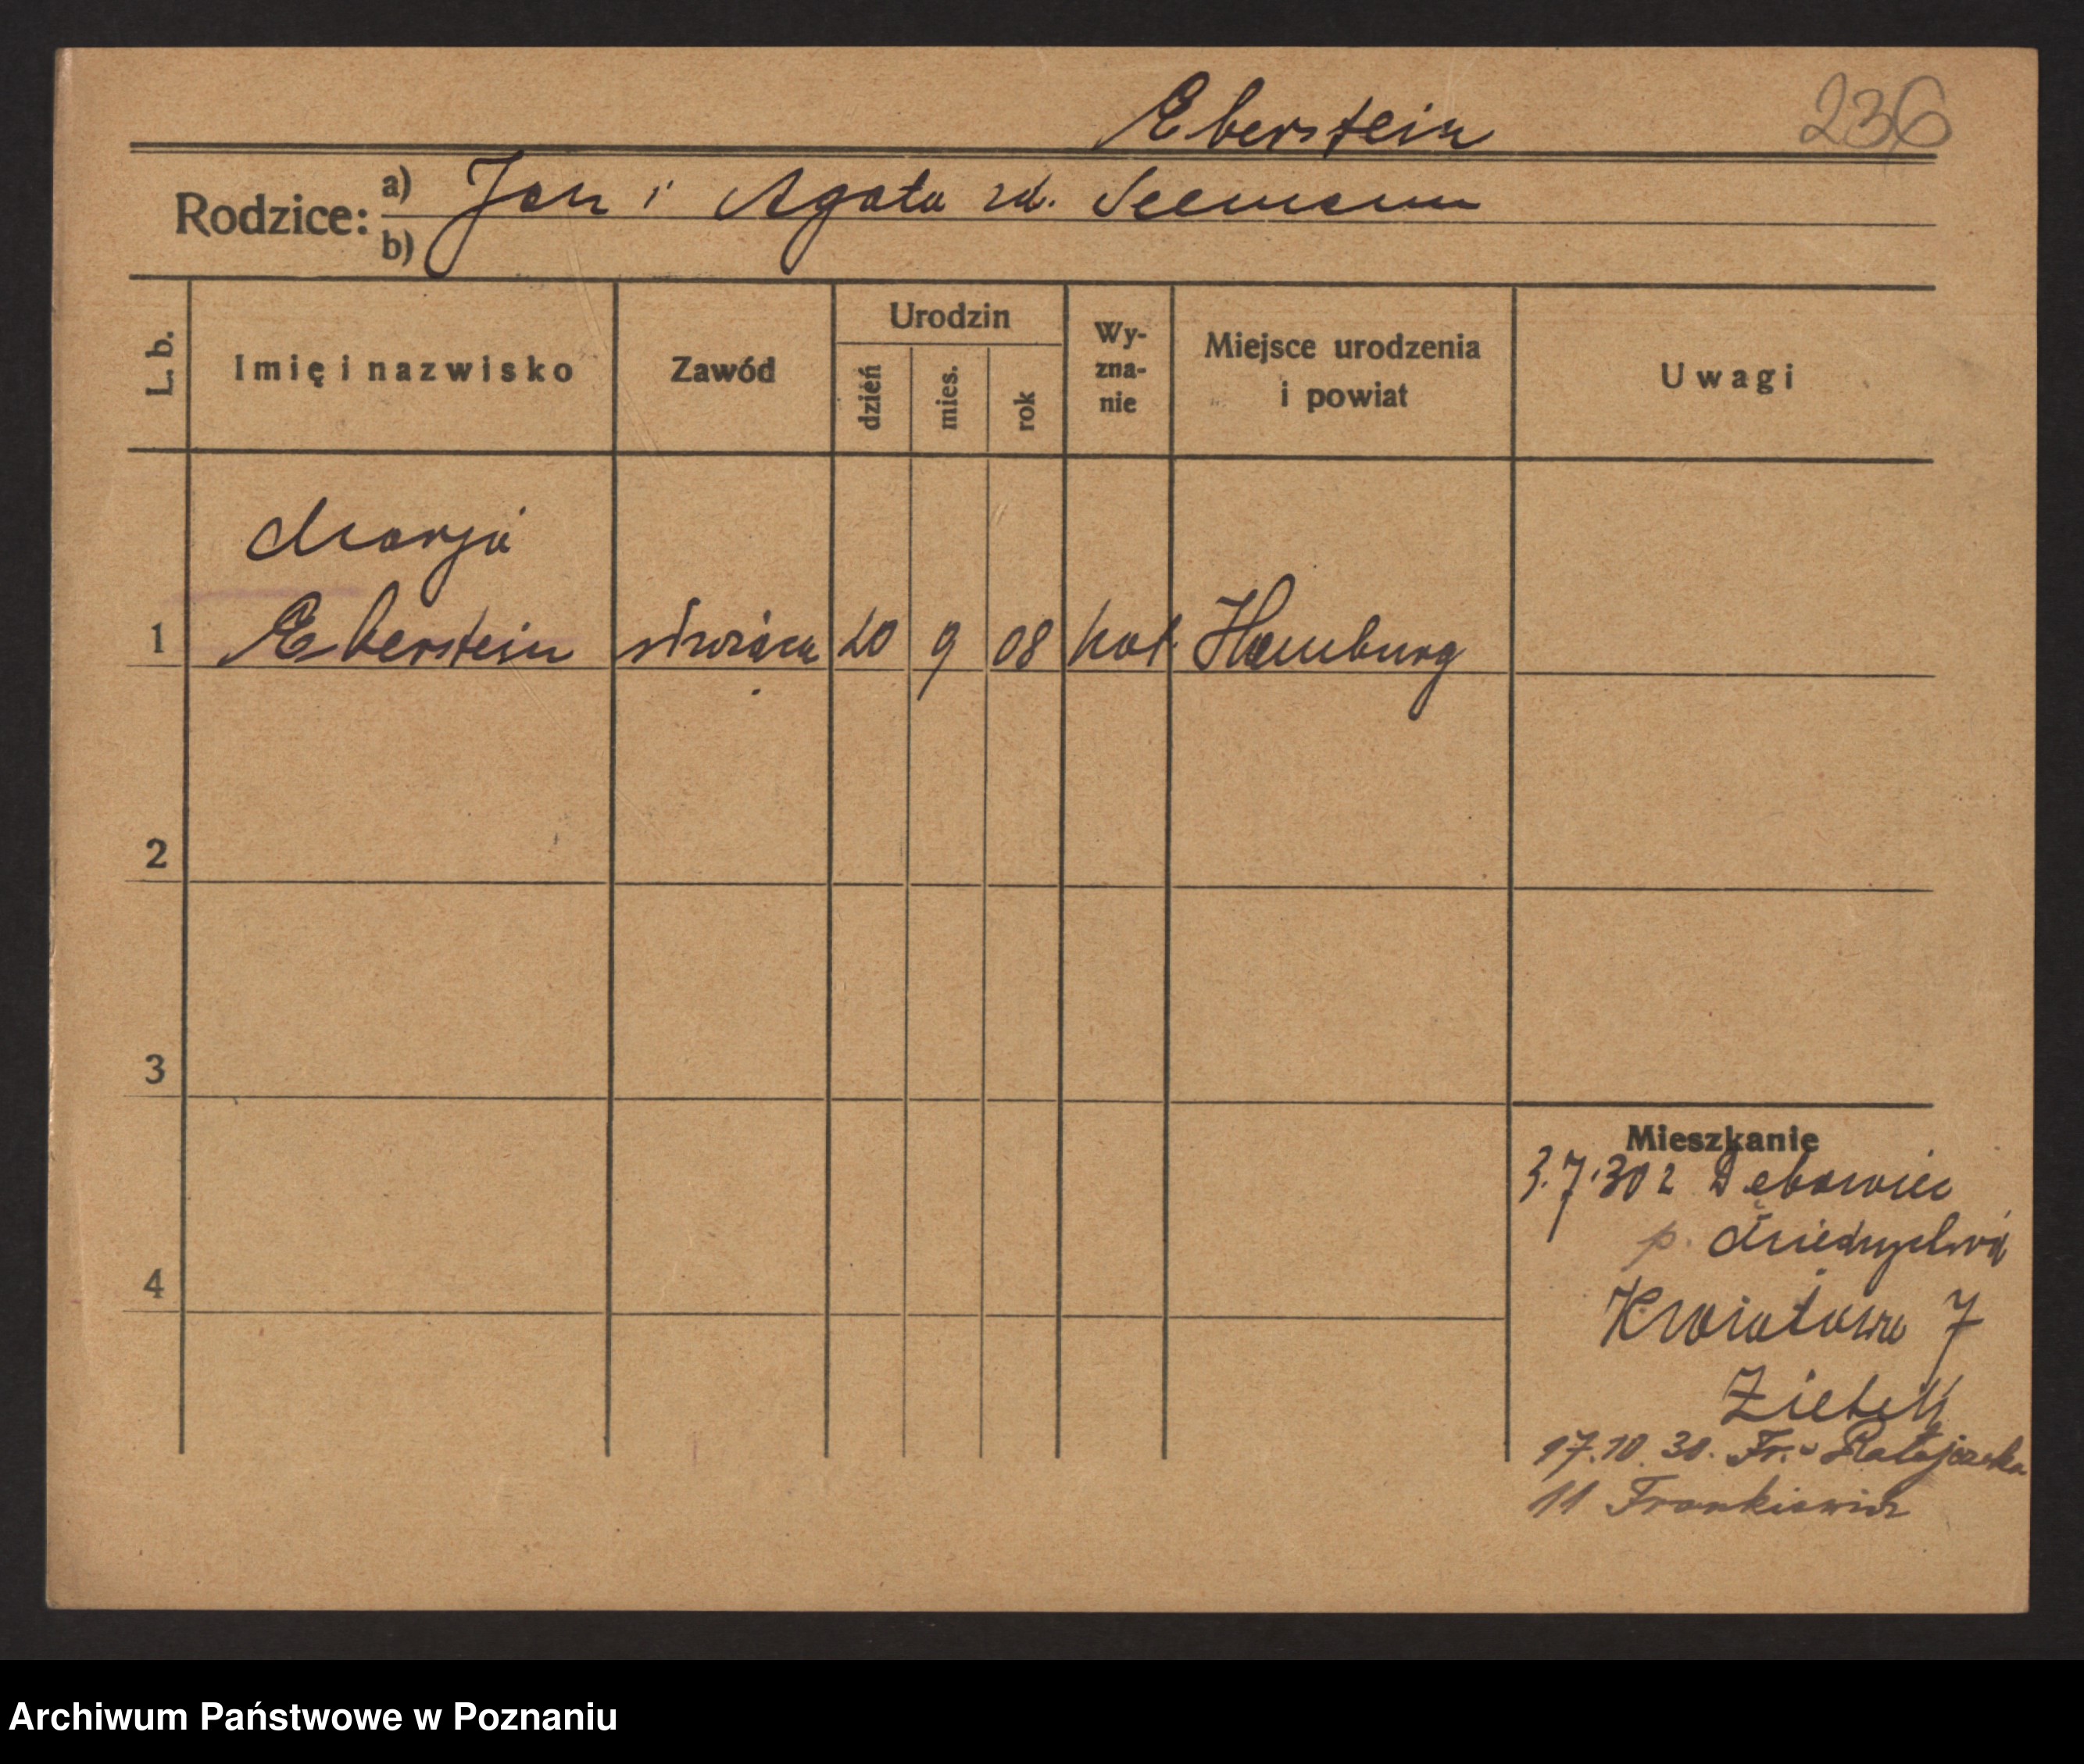 Eberstein
236
Rodzice: a) Jan i Agata zd. Seemann
b)
L. b.
Imię i nazwisko
Zawód
Urodzin
dzień
mies.
rok
Wy-
zna-
nie
Miejsce urodzenia
i powiat
Uwagi
Marja
1 Eberstein służąca 20 9 08 kat. Hamburg
2
3
4
Mieszkanie
3.7.30 z Dębowiec
p. Międzychód
Kwiatowa 7
17.10.30. Fr. Ratajczaka
11 Frankiewicz
Archiwum Państwowe w Poznaniu